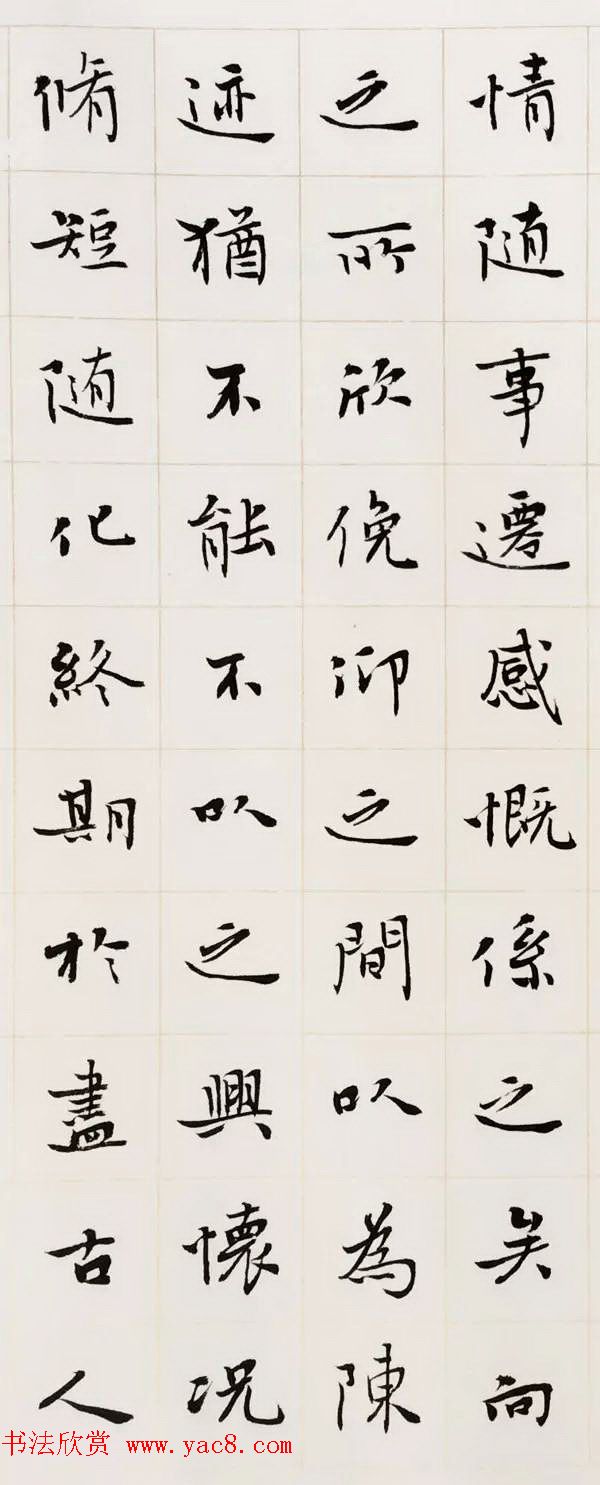 情随事遷感慨係之矣向
之所欣俛仰之間以為陳
迹猶不能不以之興懷况
脩短随化終期於盡古人
书法欣赏 www.yac8.com